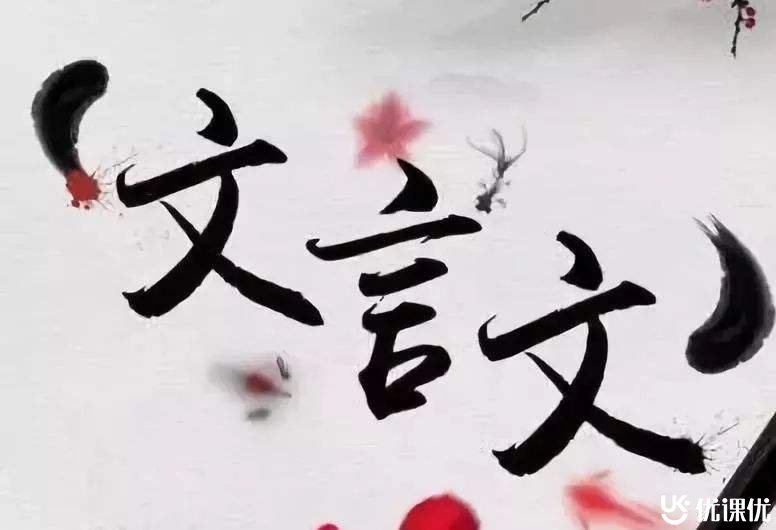 文言文
UK 优课优